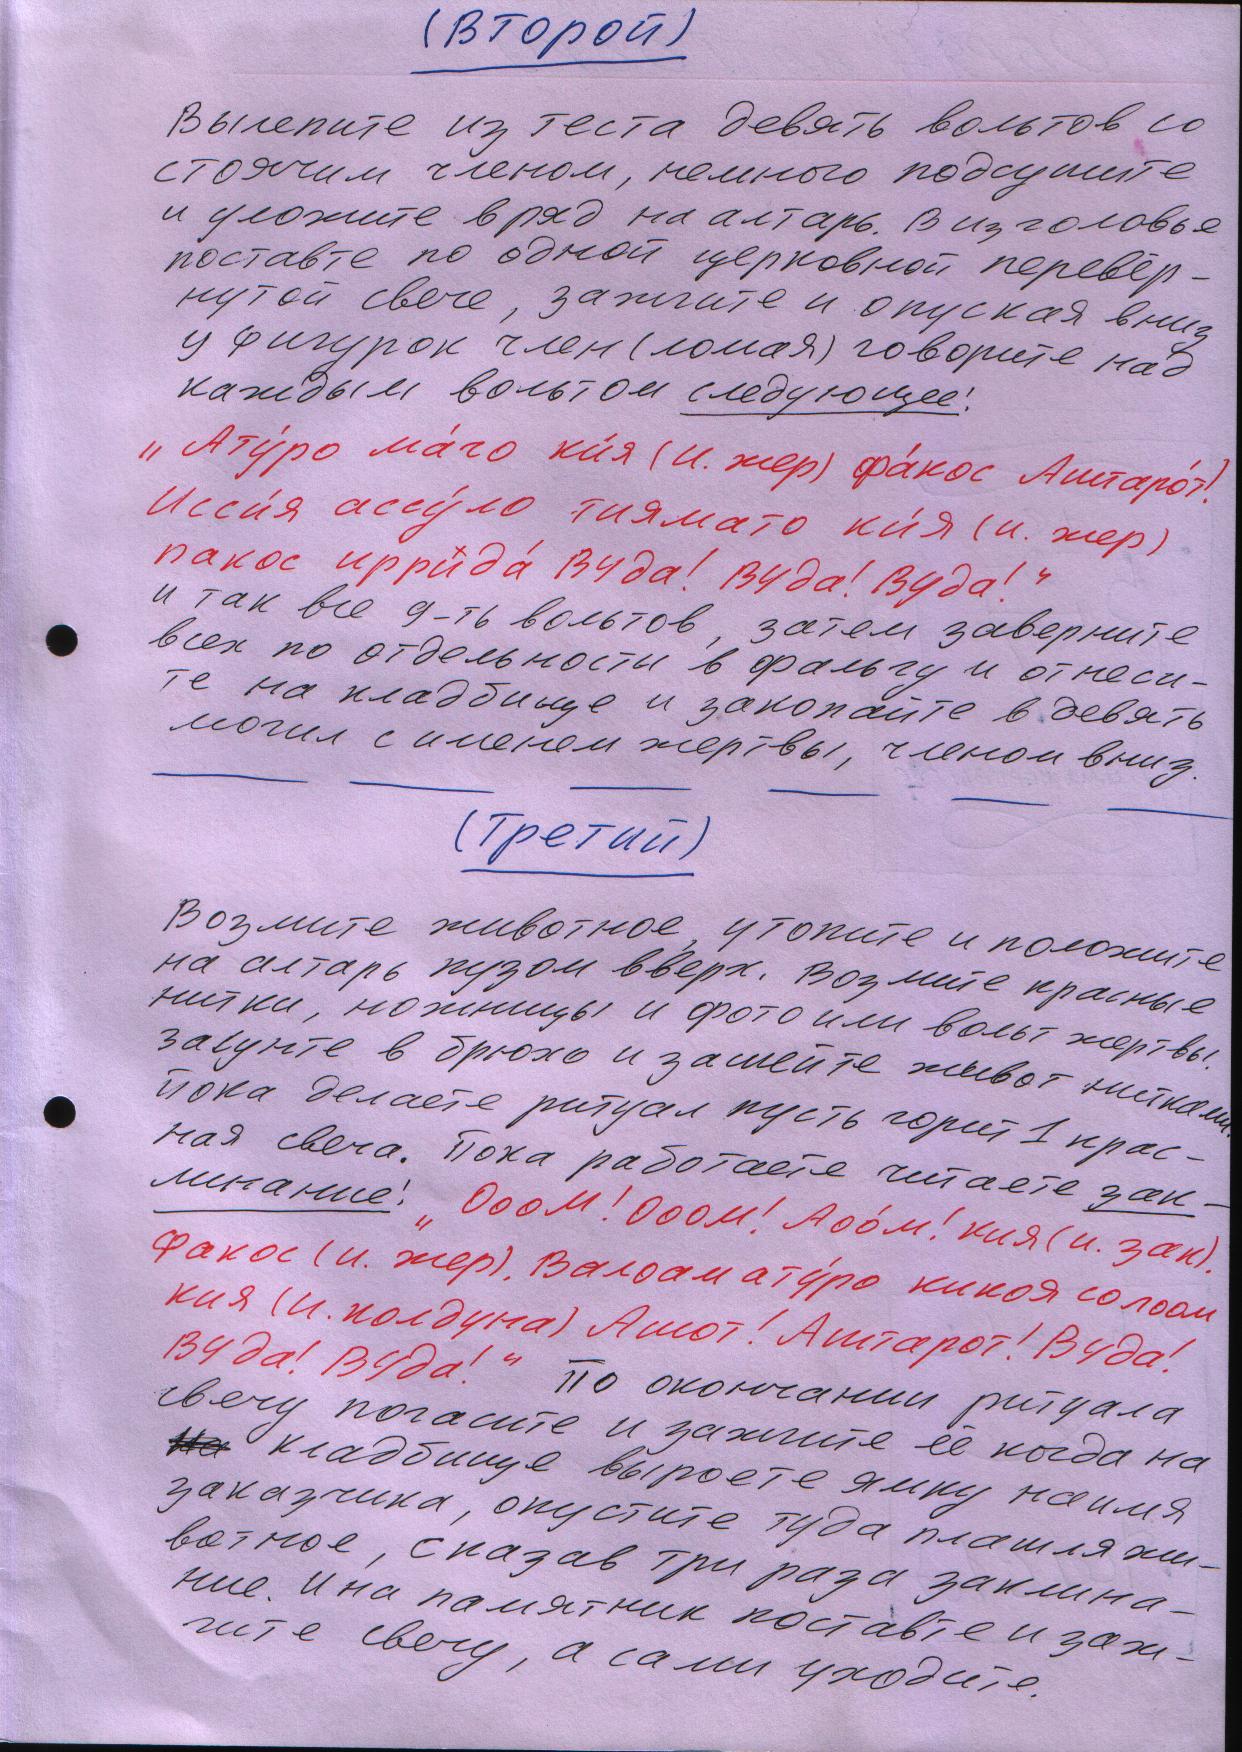 (Второй)
Вылепите из теста девять вольтов со
стоячим членом, немного подсушите
и уложите в ряд на алтарь. В изголовье
поставте по одной церковной перевёр-
нутой свече, зажгите и опуская вниз
у фигурок член (ломая) говорите над
каждым вольтом следующее:
„Ату́ро ма́чо ки́я (и. жер) фа́кос Аштаро́т!
Исси́я ассу́ло тиямато ки́я (и. жер)
пакос ирри́да́ Вуда! Вуда! Вуда!“
и так все 9-ть вольтов, затем заверните
всех по отдельности в фальгу и отнеси-
те на кладбище и закопайте в девять
могил с именем жертвы, членом вниз.
(Третий)
Возмите животное, утопите и положите
на алтарь пузом вверх. Возмите красные
нитки, ножницы и фото или вольт жертвы.
засунте в брюхо и зашейте живот нитками.
Пока делаете ритуал пусть горит 1 крас-
ная свеча. Пока работаете читаете зак-
линание: „Ооом! Ооом! Аоо́м! кия (и. зак).
Факос (и. жер). Валоам ату́ро кикоя солоом
кия (и. колдуна) Ашот! Аштарот! Вуда!
Вуда! Вуда!“ По окончании ритуала
свечу погасите и зажгите её когда на
кладбище выроете ямку на имя
заказчика, опустите туда плашля жи-
вотное, сказав три раза заклина-
ние. И на памятник поставте и заж-
гите свечу, а сами уходите.